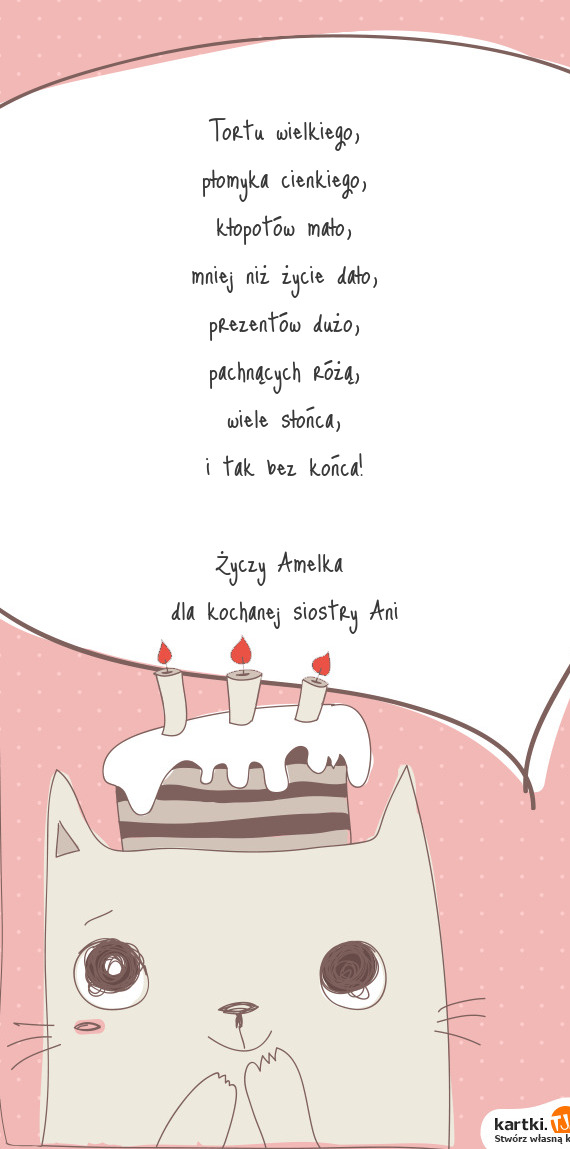 Tortu wielkiego,
płomyka cienkiego,
kłopotów mało,
mniej niż życie dało,
prezentów dużo,
pachnących różą,
wiele słońca,
i tak bez końca!
Życzy Amelka
dla kochanej siostry Ani
kartki.TJ
Stwórz własną k